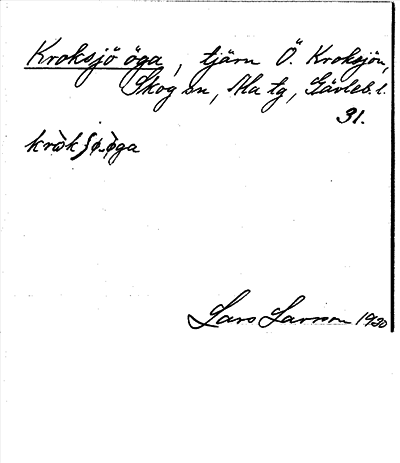 Kroksjö öga, tjärn Ö. Kroksjön,
Skog sn, Ala tg, Gävleb. l.
31.
kròkʃø-ø̀ga
Lars Larsson 1930